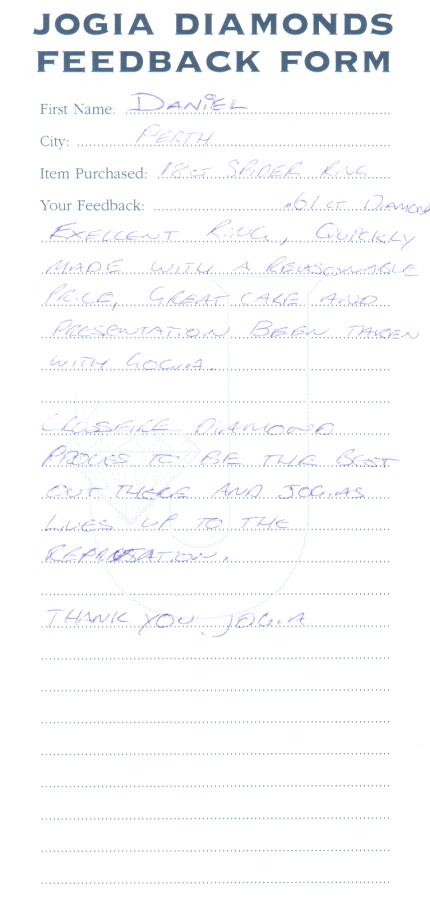 JOGIA DIAMONDS
FEEDBACK FORM
First Name: DANIEL
City: PERTH
Item Purchased: 18CT SPIDER RING
Your Feedback: .61CT DIAMOND
EXELLENT RING, QUICKLY
MADE WITH A REASONABLE
PRICE, GREAT CARE AND
PRESENTATION BEEN TAKEN
WITH GOGIA.
CROSSFIRE DIAMOND
PROVES TO BE THE BEST
OUT THERE AND JOGIAS
LIVES UP TO THE
REPRUTATION.
THANK YOU JOGIA